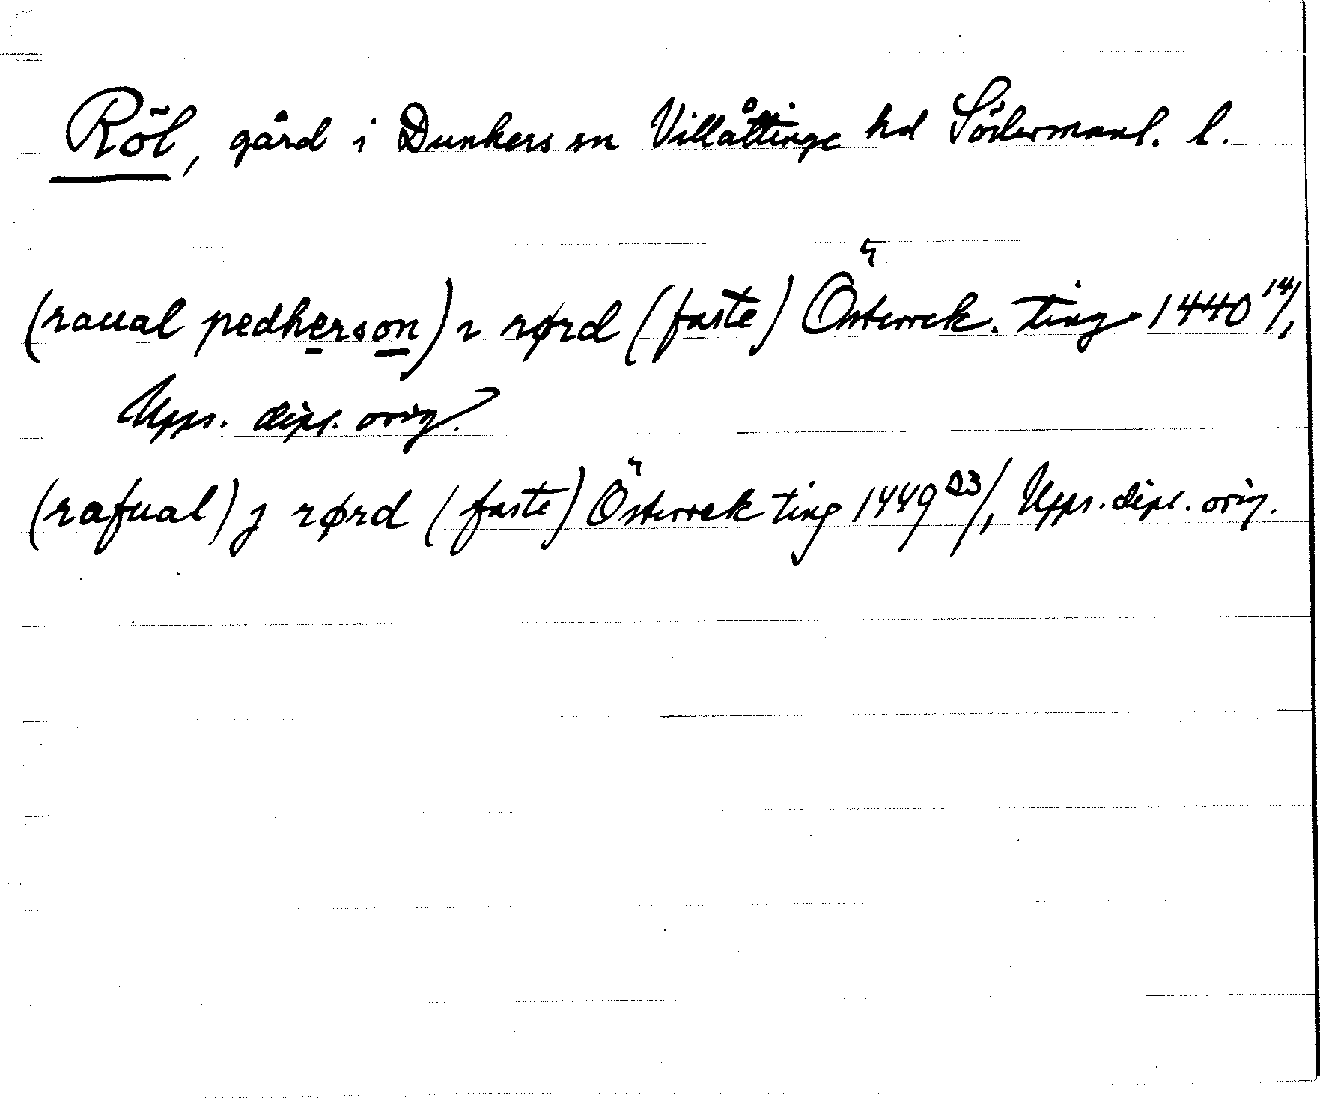 Röl, gård i Dunkers sn Villåttinge hd Södermanl. l.
(raual pedherson) i rørd (faste) Österrek. ting 1440 14/,
Upps. dipl. orig.
(rafual) j rørd (faste) Österrek ting 1449 23/, Upps. dipl. orig.